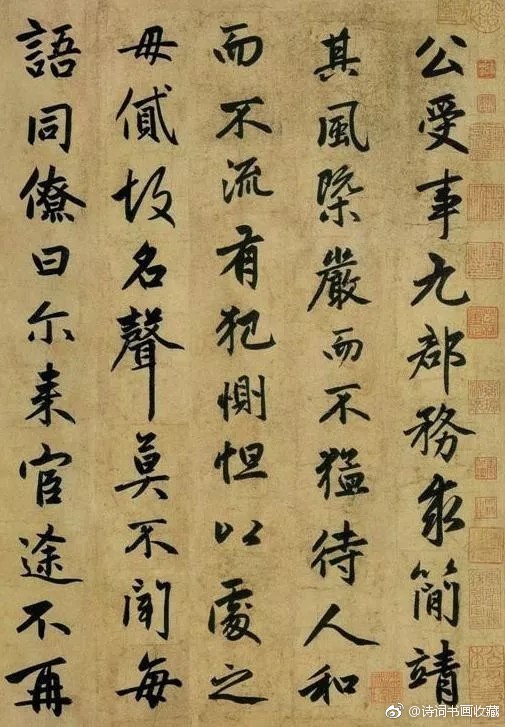 公受事九郡務求簡靖
其風槩嚴而不猛待人和
而不流有犯惻怛以處之
毋貸故名聲莫不聞每
語同僚曰尒來宦途不再
@诗词书画收藏